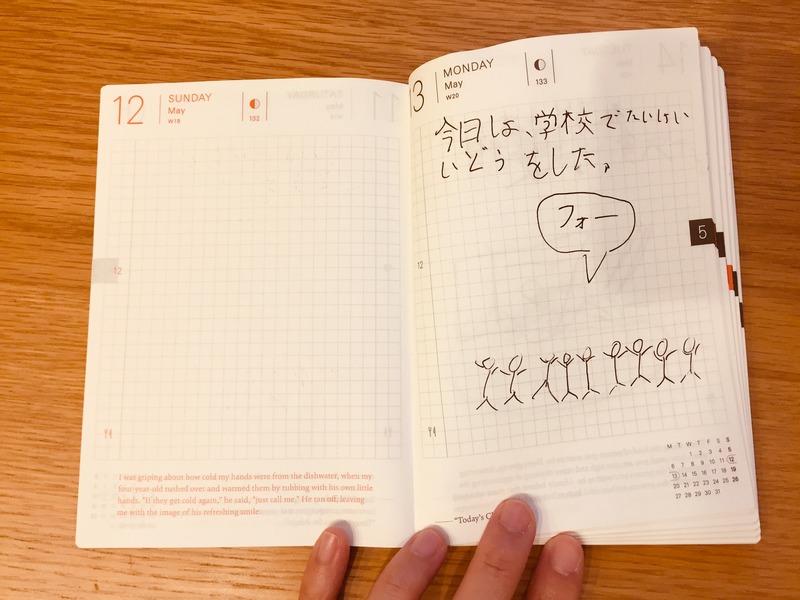 12
SUNDAY
May
W19
132
12
I was griping about how cold my hands were from the dishwater, when my
four-year-old rushed over and warmed them by rubbing with his own little
hands. "If they get cold again," he said, "just call me." He ran off, leaving
me with the image of his refreshing smile.
13
MONDAY
May
W20
133
今日は、学校でたいけい
いどうをした。
フォー
12
5
M T W T F S S
1 2 3 4 5
6 7 8 9 10 11 12
13 14 15 16 17 18 19
20 21 22 23 24 25 26
27 28 29 30 31
"Today's